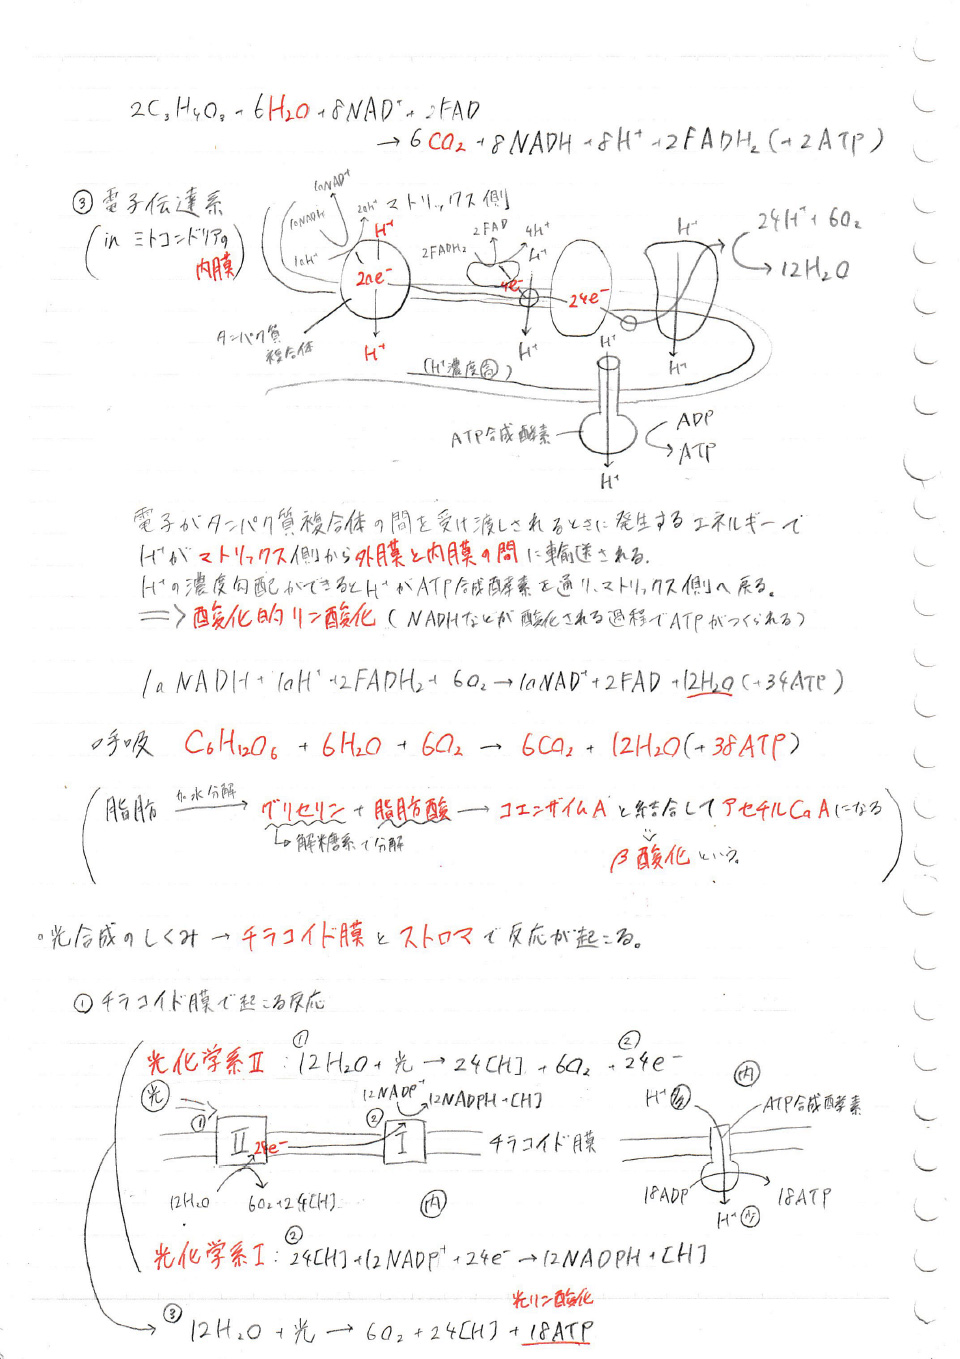 2C₃H₄O₃ + 6H₂O + 8NAD⁺ + 2FAD
→ 6CO₂ + 8NADH + 8H⁺ + 2FADH₂ (+2ATP)
③ 電子伝達系
(in ミトコンドリアの
内膜)
10NAD⁺
10NADH
10H⁺
20H⁺
マトリックス側
H⁺
20e⁻
H⁺
タンパク質
複合体
2FAD
2FADH₂
4H⁺
H⁺
4e⁻
H⁺
24e⁻
H⁺
H⁺
24H⁺ + 6O₂
12H₂O
(H⁺濃度高)
H⁺
ATP合成酵素
ADP
ATP
H⁺
電子がタンパク質複合体の間を受け渡しされるときに発生するエネルギーで
H⁺がマトリックス側から外膜と内膜の間に輸送される。
H⁺の濃度勾配ができるとH⁺がATP合成酵素を通り、マトリックス側へ戻る。
⇒ 酸化的リン酸化 (NADHなどが酸化される過程でATPがつくられる)
10NADH + 10H⁺ + 2FADH₂ + 6O₂ → 10NAD⁺ + 2FAD + 12H₂O (+34ATP)
○呼吸 C₆H₁₂O₆ + 6H₂O + 6O₂ → 6CO₂ + 12H₂O (+38ATP)
脂肪 加水分解→ グリセリン + 脂肪酸 → コエンザイムAと結合してアセチルCoAになる
↳ 解糖系で分解
β酸化という。
○光合成のしくみ → チラコイド膜とストロマで反応が起こる。
① チラコイド膜で起こる反応
① ②
光化学系Ⅱ : 12H₂O + 光 → 24[H] + 6O₂ + 24e⁻
光
①
Ⅱ
24e⁻
12H₂O
6O₂ + 24[H]
②
12NADP⁺
12NADPH + [H]
Ⅰ
チラコイド膜
内
H⁺ 多
内
ATP合成酵素
18ADP
18ATP
H⁺
②
光化学系Ⅰ : 24[H] + 12NADP⁺ + 24e⁻ → 12NADPH + [H]
光リン酸化
③ 12H₂O + 光 → 6O₂ + 24[H] + 18ATP